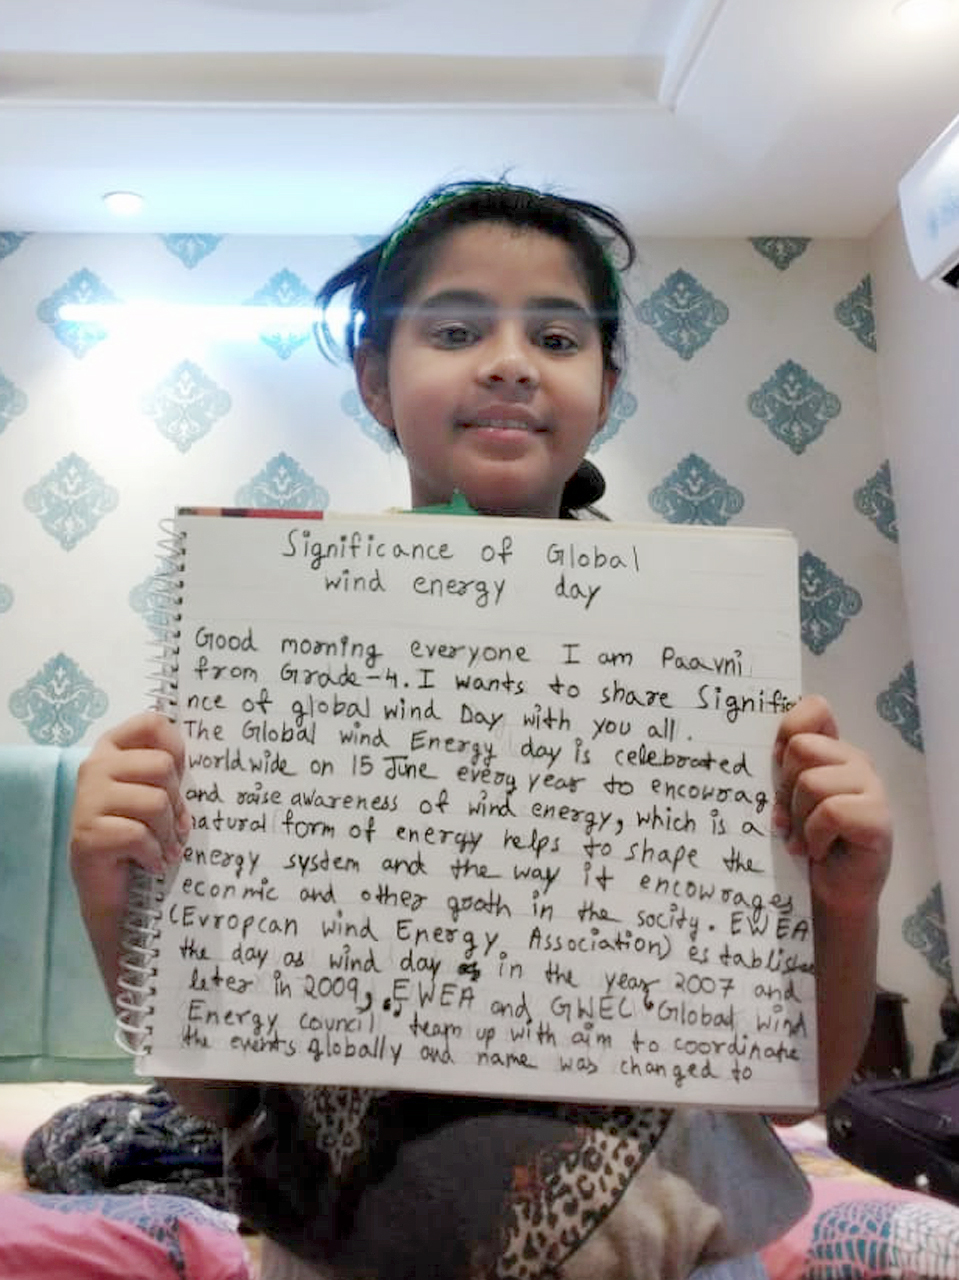 Significance of Global
wind energy day
Good morning everyone I am Paavni
from Grade-4. I wants to share Signific
nce of global wind Day with you all.
The Global wind Energy day is celebrated
worldwide on 15 June every year to encourag
and raise awareness of wind energy, which is a
natural form of energy helps to shape the
energy system and the way it encourages
econmic and other groath in the socity. EWEA
(Evropcan wind Energy Association) establishe
the day as wind day in the year 2007 and
leter in 2009, EWEA and GWEC Global wind
Energy council team up with aim to coordinate
the events globally and name was changed to